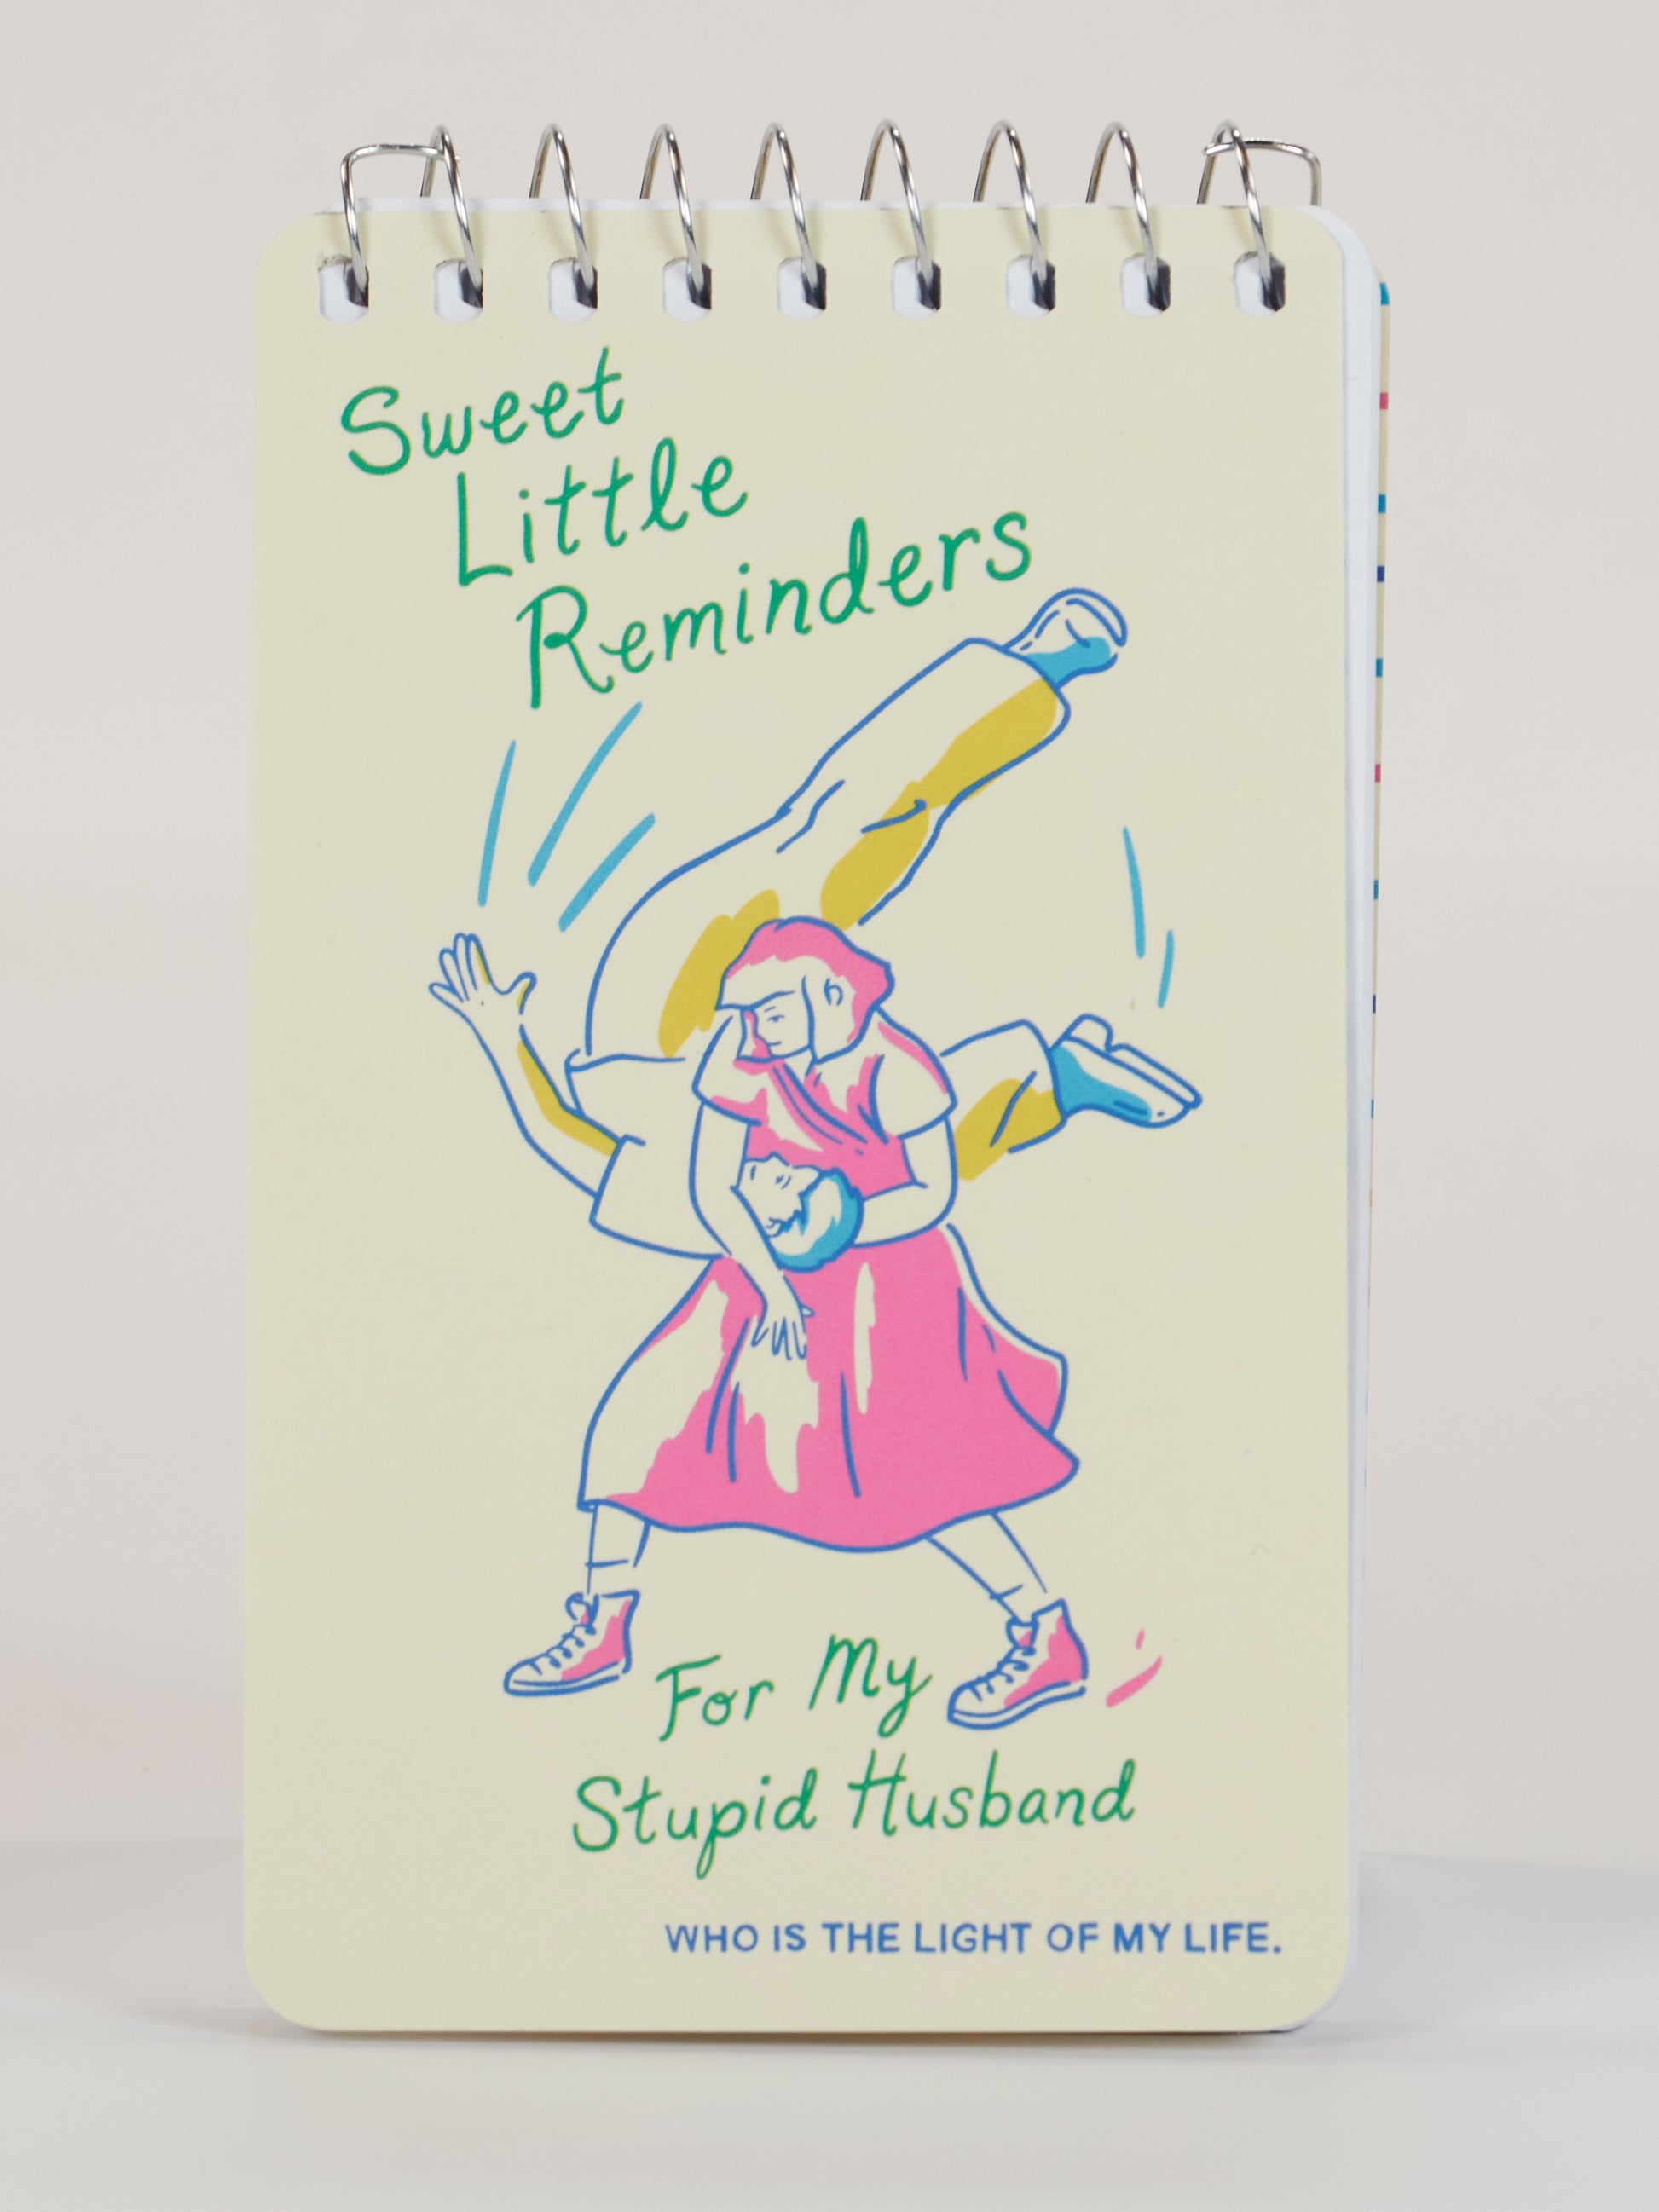 Sweet
Little
Reminders
For My
Stupid Husband
WHO IS THE LIGHT OF MY LIFE.